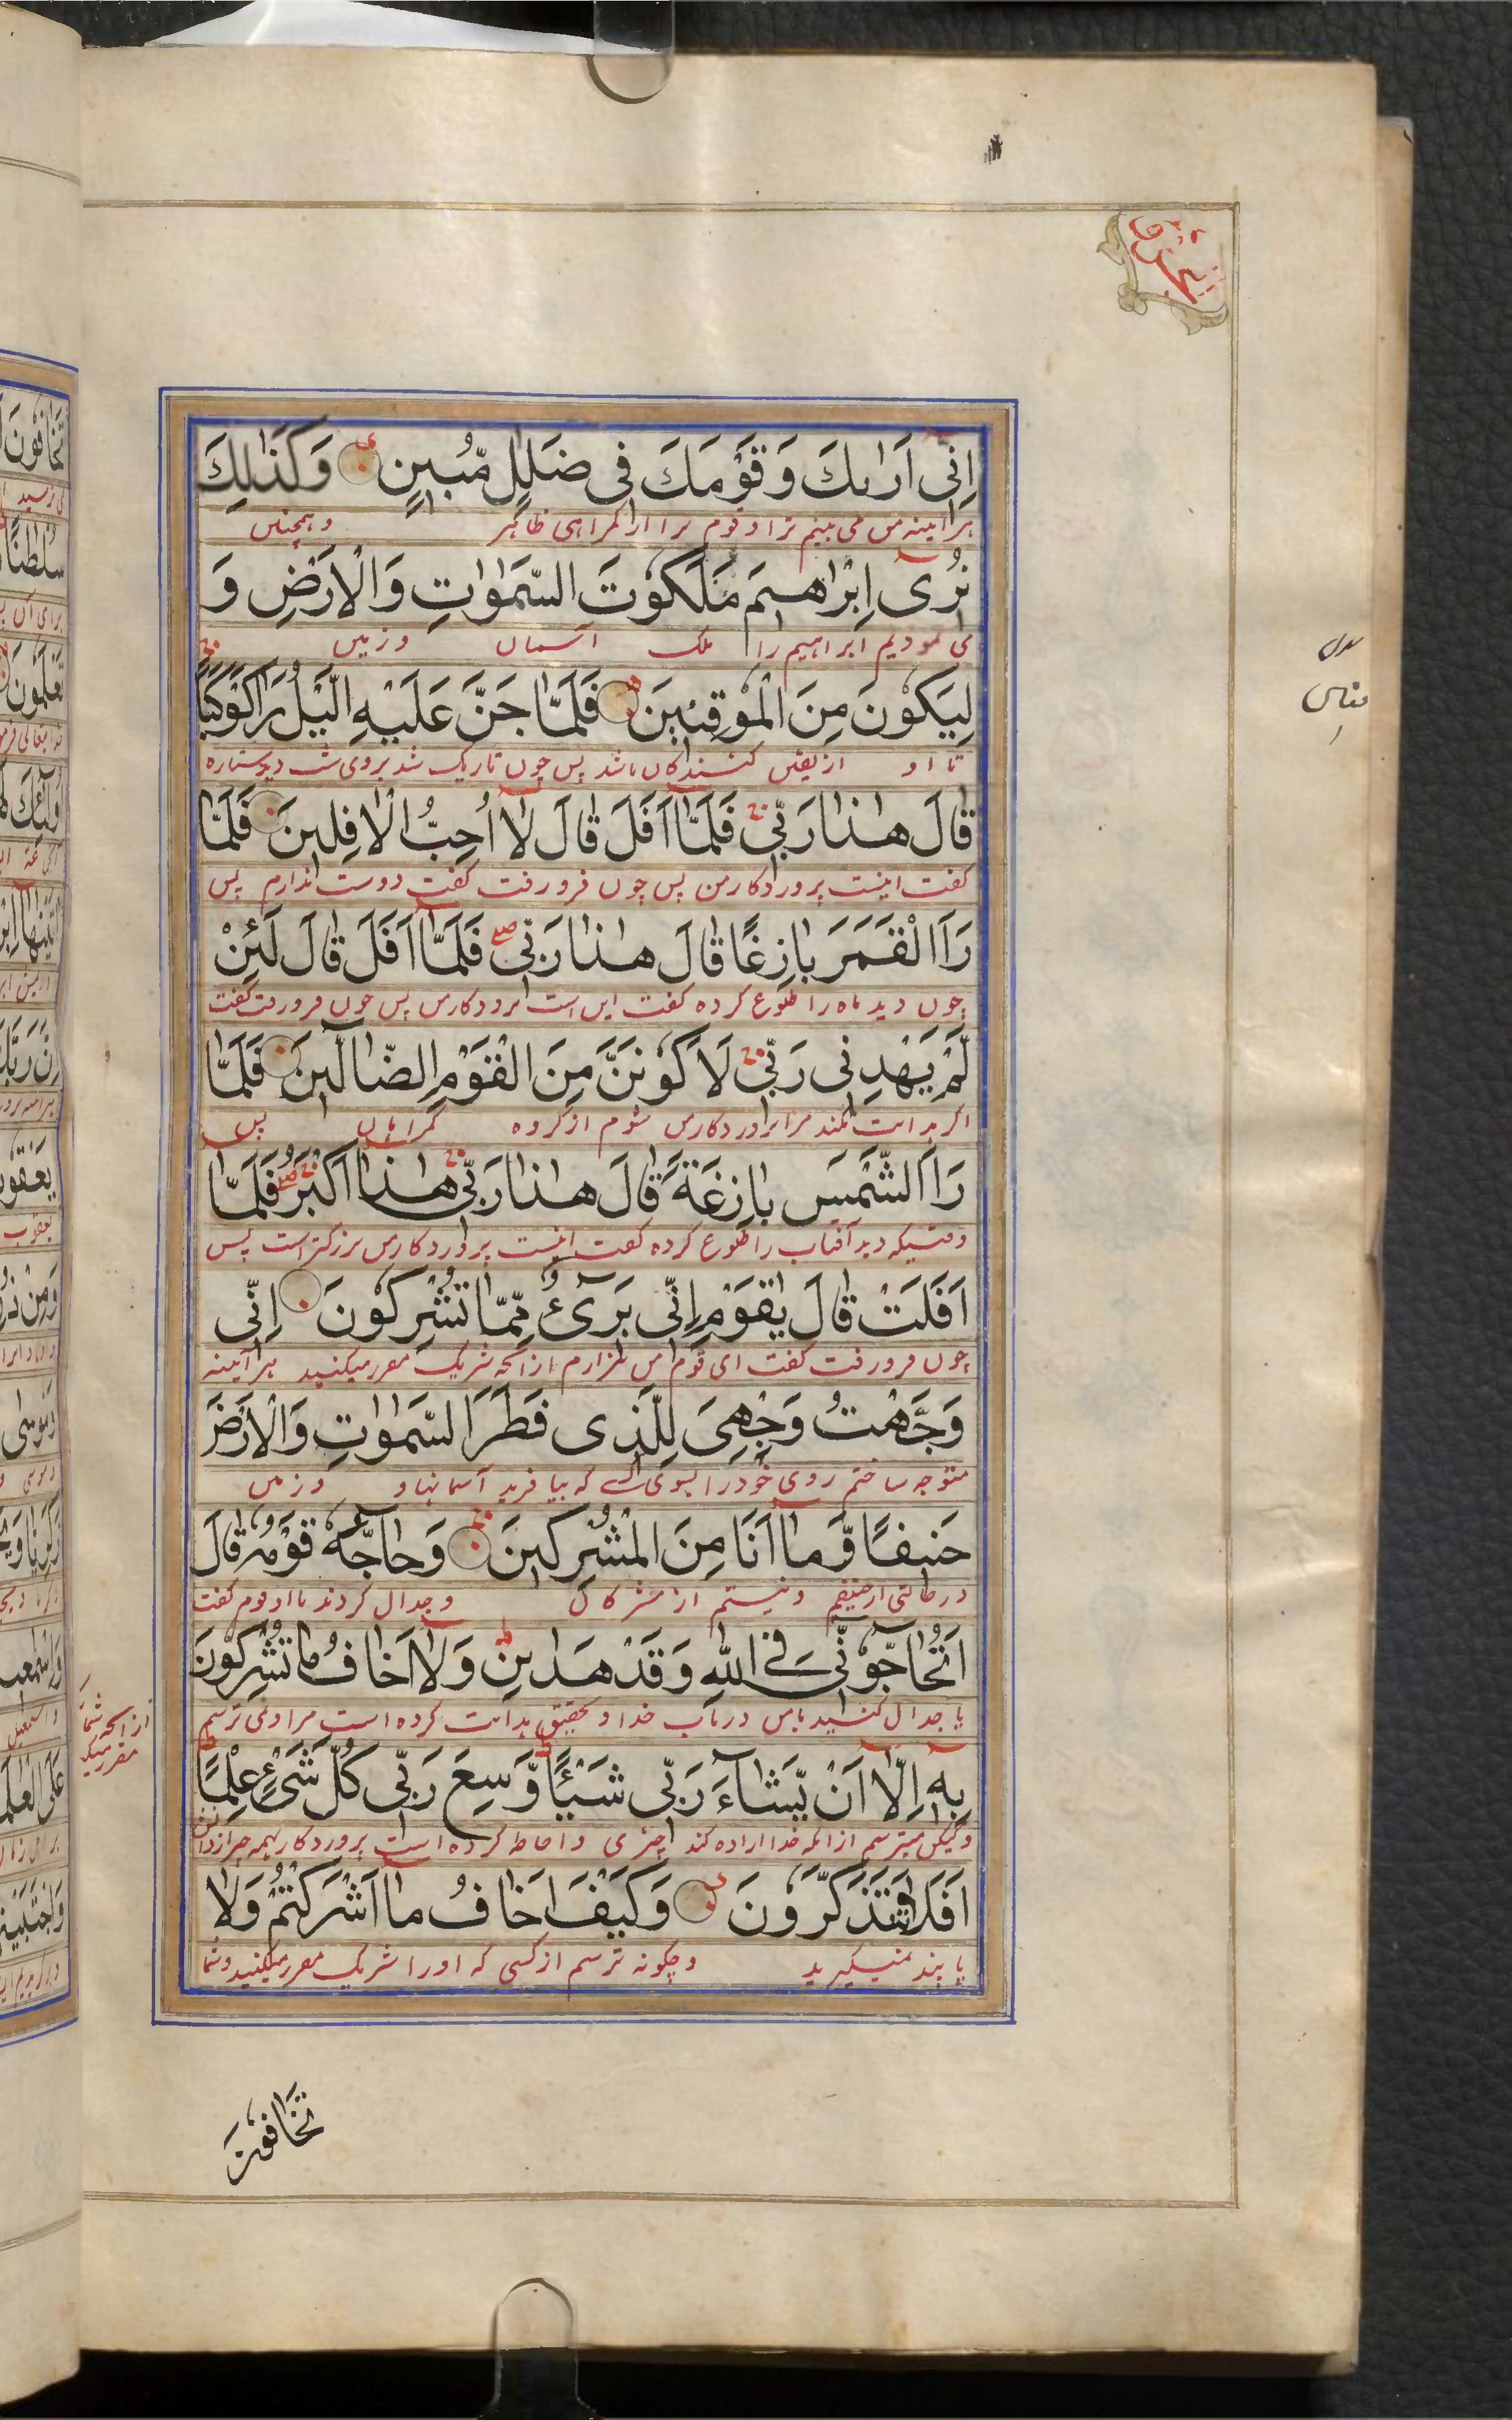 اِنِّی اَرٰىكَ وَ قَوْمَكَ فِی ضَلٰلٍ مُّبِینٍ وَ كَذٰلِكَ
هر آینه من می بینم ترا و قوم ترا در گمراهی ظاهر و همچنین
نُرِیٓ اِبْرٰاهِیمَ مَلَكُوتَ السَّمٰوٰاتِ وَ الْاَرْضِ وَ
می نمودیم ابراهیم را ملک آسمان و زمین
لِیَكُونَ مِنَ الْمُوقِنِینَ فَلَمّٰا جَنَّ عَلَیْهِ الَّیْلُ رَاٰ كَوْكَبًا
تا او از یقین کنندگان باشد پس چون تاریک شد بروی شب دید ستاره
قٰالَ هٰذٰا رَبِّی فَلَمّٰآ اَفَلَ قٰالَ لٰآ اُحِبُّ الْاٰفِلِینَ فَلَمّٰا
گفت اینست پروردکار من پس چون فرو رفت گفت دوست ندارم پس
رَاَ الْقَمَرَ بٰازِغًا قٰالَ هٰذٰا رَبِّی فَلَمّٰآ اَفَلَ قٰالَ لَئِنْ
چون دید ماه را طلوع کرده گفت این است پروردکار من پس چون فرو رفت گفت
لَّمْ یَهْدِنِی رَبِّی لَاَكُونَنَّ مِنَ الْقَوْمِ الضّٰآلِّینَ فَلَمّٰا
اگر هدایت نکند مرا پروردکار من شوم از گروه گمراهان پس
رَاَ الشَّمْسَ بٰازِغَةً قٰالَ هٰذٰا رَبِّی هٰذٰآ اَكْبَرُ فَلَمّٰآ
وقتیکه دید آفتاب را طلوع کرده گفت اینست پروردکار من بزرگتر است پس
اَفَلَتْ قٰالَ یٰقَوْمِ اِنِّی بَرِیٓءٌ مِّمّٰا تُشْرِكُونَ اِنِّی
چون فرو رفت گفت ای قوم من بیزارم از آنچه شریک مقرر میکنید هر آینه
وَجَّهْتُ وَجْهِیَ لِلَّذِی فَطَرَ السَّمٰوٰاتِ وَ الْاَرْضَ
متوجه ساختم روی خود را بسوی کسی که بیافرید آسمانها و و زمین
حَنِیفًا وَّ مٰآ اَنَا مِنَ الْمُشْرِكِینَ وَ حٰآجَّهُ قَوْمُهُ قٰالَ
در حالتی از حنیفم و نیستم از مشرکان و جدال کردند با او قوم گفت
اَتُحٰآجُّوٓنِّی فِی اللّٰهِ وَ قَدْ هَدٰىنِ وَ لٰآ اَخٰافُ مٰا تُشْرِكُونَ
یا جدال کنید با من در باب خدا و تحقیق هدایت کرده است مرا و نمی ترسم
از آنچه شما مقرر میکنید
بِهِ اِلّٰآ اَنْ یَّشٰآءَ رَبِّی شَیْئًا وَّسِعَ رَبِّی كُلَّ شَیْءٍ عِلْمًا
و لیکن میترسم از آنکه خدا اراده کند چیزی و احاطه کرده است پروردکار همه چیز از دانش
اَفَلٰا تَتَذَكَّرُونَ وَ كَیْفَ اَخٰافُ مٰآ اَشْرَكْتُمْ وَ لٰا
یا پند نمیگیرید و چگونه ترسم از کسی که او را شریک مقرر میکنید و شما
تَخٰافُونَ